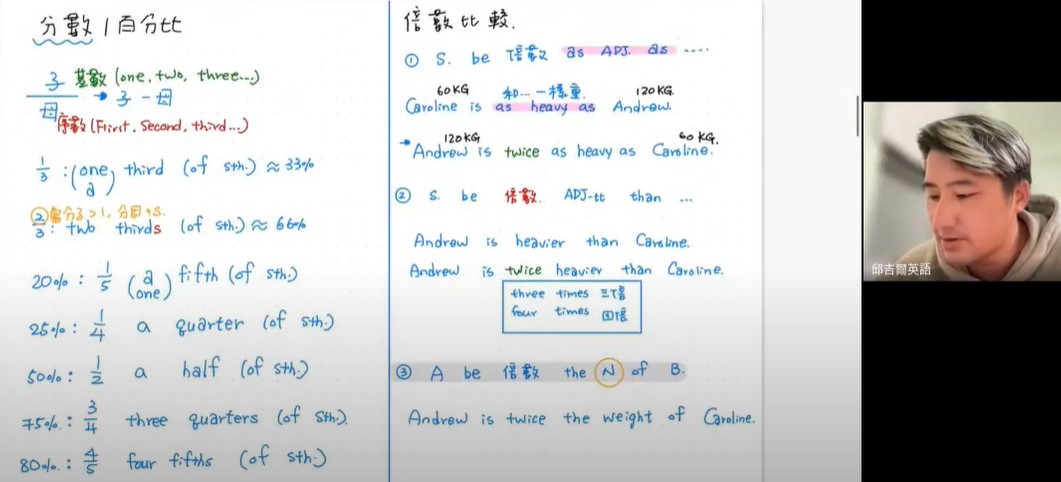 分數 / 百分比
子 基數 (one, two, three...)
→ 子 - 母
母 序數 (First, Second, third...)
1/3 : (one a) third (of sth.) ≈ 33%
當分子 > 1, 分母 + s.
2/3 : two thirds (of sth.) ≈ 66%
20% : 1/5 (a one) fifth (of sth.)
25% : 1/4 a quarter (of sth.)
50% : 1/2 a half (of sth.)
75% : 3/4 three quarters (of sth.)
80% : 4/5 four fifths (of sth.)
倍數比較.
① S. be 倍數 as ADJ. as ....
60KG 和...一樣重. 120KG.
Caroline is as heavy as Andrew.
120KG 60KG.
Andrew is twice as heavy as Caroline.
② S. be 倍數. ADJ-er than ...
Andrew is heavier than Caroline.
Andrew is twice heavier than Caroline.
three times 三倍
four times 四倍
③ A be 倍數 the N of B.
Andrew is twice the weight of Caroline.
邱吉爾英語